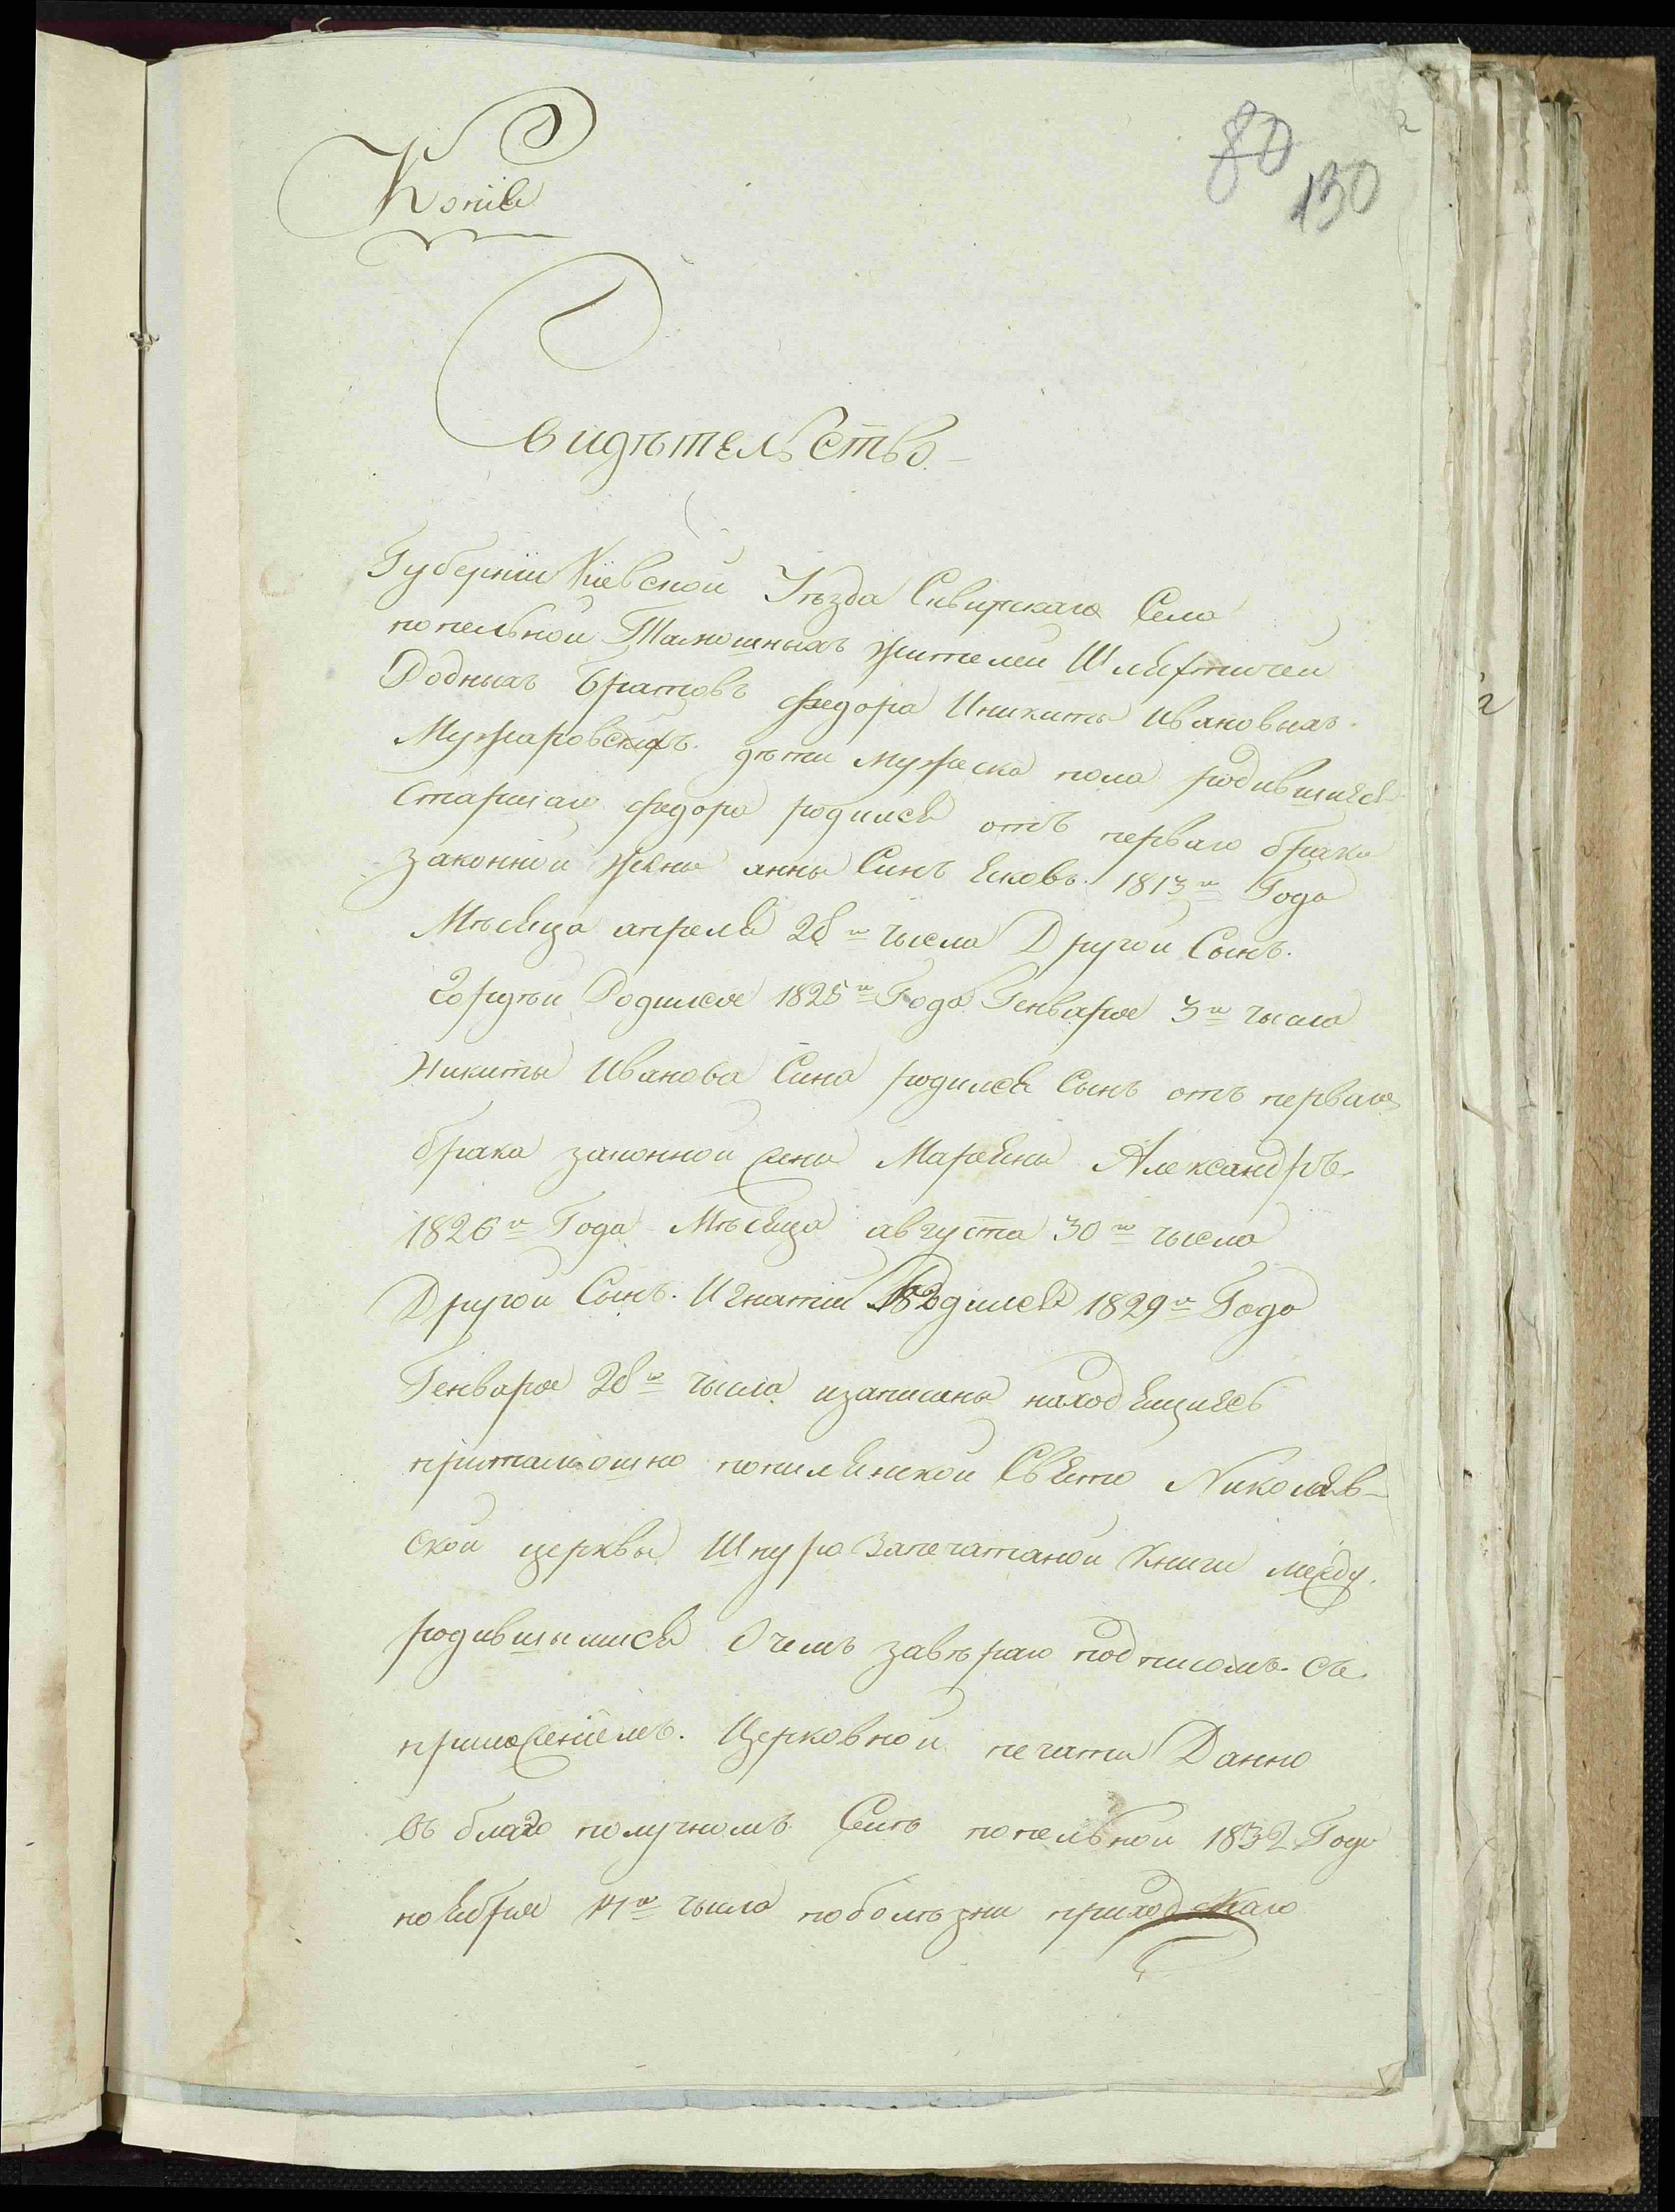 80
130
Копія
Свидѣтельство
Губерніи Кіевской Уѣзда Сквирскаго Села
попельной Тамошныхъ жителей Шляхтичей
Родныхъ Братовъ Федора Иникиты Ивановыхъ
Мужаровскихъ дѣти мужеска пола родившіеся
Старшаго федора родился отъ перваго брака
законной жены анны Синъ Яковъ 1813го Года
Мѣсяца апреля 28го чысла Другой Сынъ.
Гордѣй Родился 1825го Года Генваря 3го числа
Никиты Иванова Сина родился Сынъ отъ перваго
брака законной жены Марены Александръ
1826го Года Мѣсяца августа 30го чысла
Другой Сынъ. Игнатій Родился 1829го Года
Генваря 28го чысла изаписаны находящіесь
притамошно попилянской Свято Николаев-
ской церквы Шнуро Запечатаной Книги между
родившымися Очемъ завѣряю подписомъ съ
приложеніемъ. Церковной печати Данно
въ благо получномъ Селѣ попельной 1832 Года
ноября 14го чысла поболѣзни приходскаго